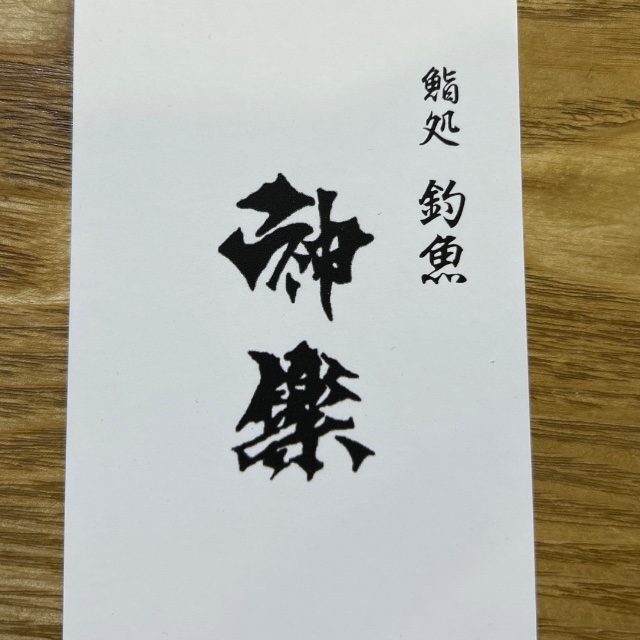 鮨処 釣魚
神樂